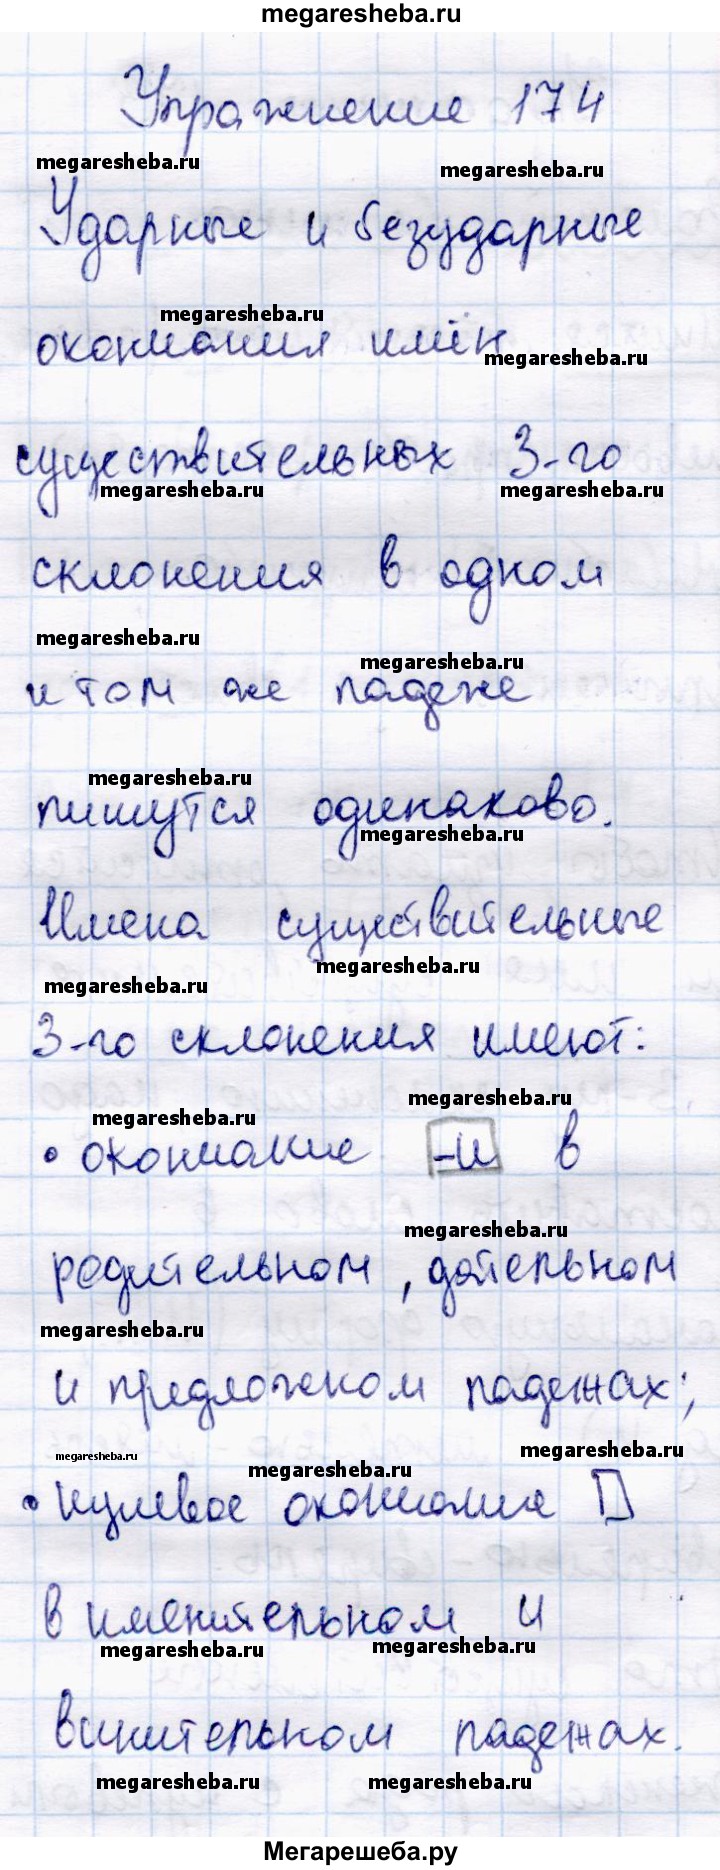 megaresheba.ru
Упражнение 174
megaresheba.ru megaresheba.ru
Ударные и безударные
megaresheba.ru
окончания имён
megaresheba.ru
существительных 3-го
megaresheba.ru megaresheba.ru
склонения в одном
megaresheba.ru
megaresheba.ru
и том же падеже
megaresheba.ru
пишутся одинаково.
megaresheba.ru
Имена существительные
megaresheba.ru
megaresheba.ru
3-го склонения имеют:
megaresheba.ru
megaresheba.ru
• окончание -и в
megaresheba.ru
родительном, дательном
megaresheba.ru
и предложном падежах;
megaresheba.ru
megaresheba.ru
megaresheba.ru
• нулевое окончание □
в именительном и
megaresheba.ru megaresheba.ru
винительном падежах.
megaresheba.ru megaresheba.ru
Мегарешеба.ру